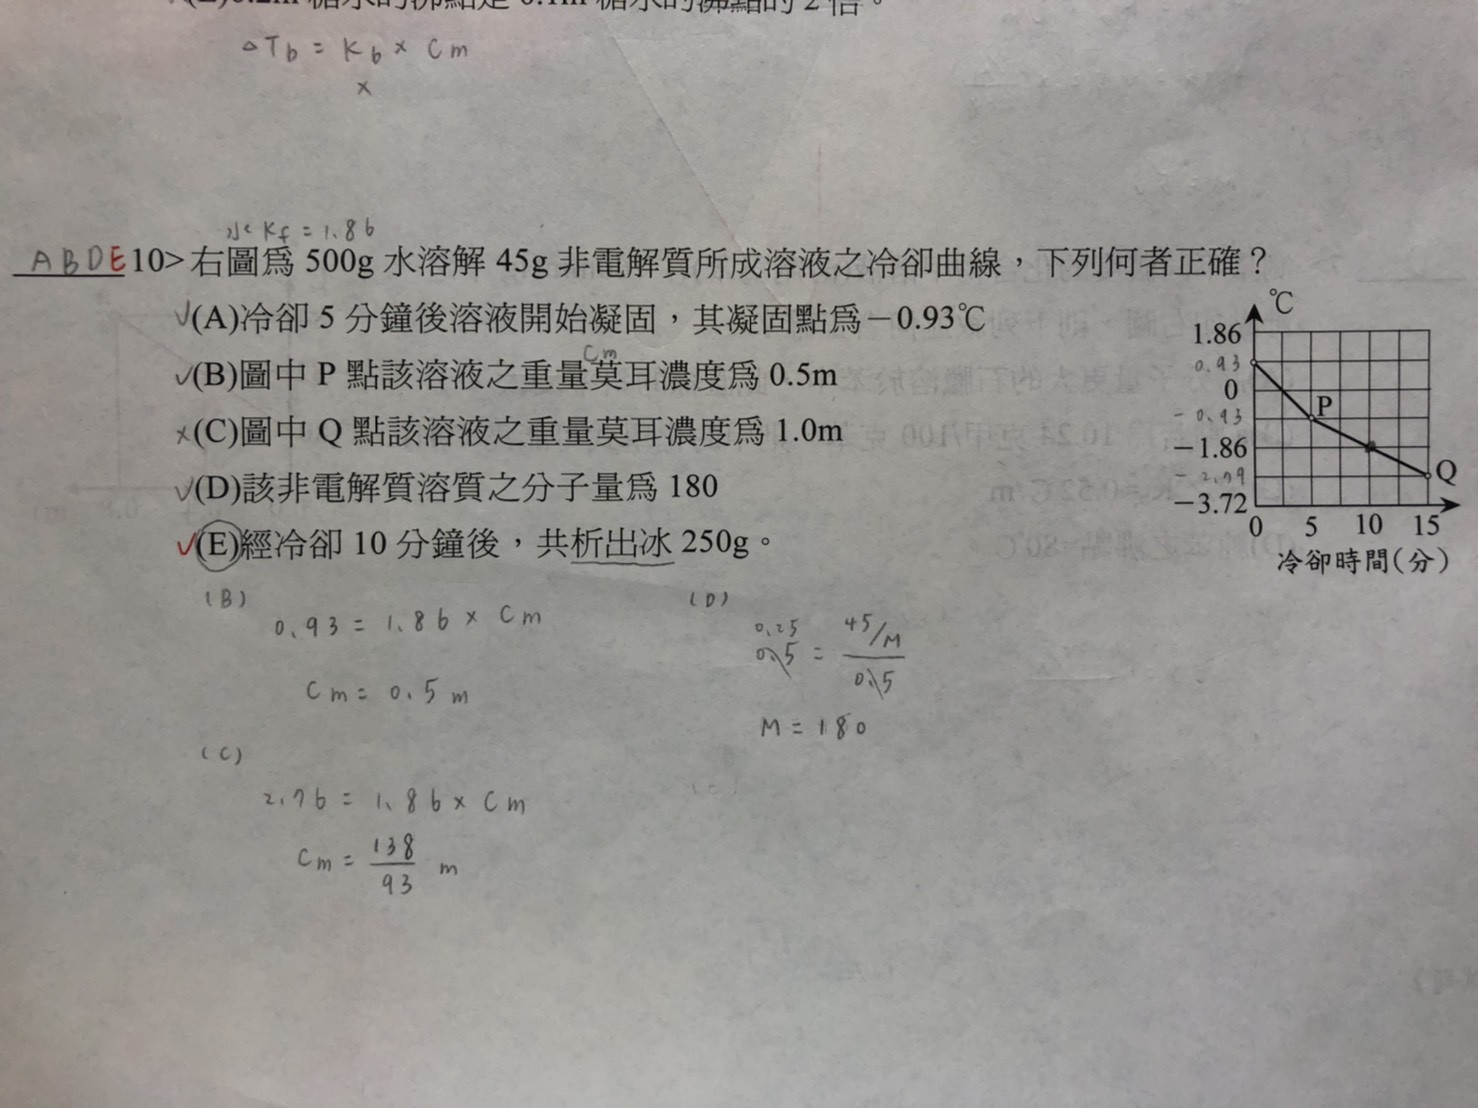 (E)0.2m 糖水的沸點是 0.1m 糖水的沸點的 2 倍。
△Tb = Kb × Cm
×
水 Kf = 1.86
ABDE 10> 右圖為 500g 水溶解 45g 非電解質所成溶液之冷卻曲線，下列何者正確？
✓(A)冷卻 5 分鐘後溶液開始凝固，其凝固點為－0.93℃
Cm
✓(B)圖中 P 點該溶液之重量莫耳濃度為 0.5m
×(C)圖中 Q 點該溶液之重量莫耳濃度為 1.0m
✓(D)該非電解質溶質之分子量為 180
✓(E)經冷卻 10 分鐘後，共析出冰 250g。
℃
1.86
0.93
0
P
-0.93
－1.86
-2.79
Q
－3.72
0 5 10 15
冷卻時間(分)
(B)
0.93 = 1.86 × Cm
Cm = 0.5 m
(C)
2.76 = 1.86 × Cm
Cm = 138/93 m
(D)
0.25
0.5 = 45/M / 0.5
M = 180